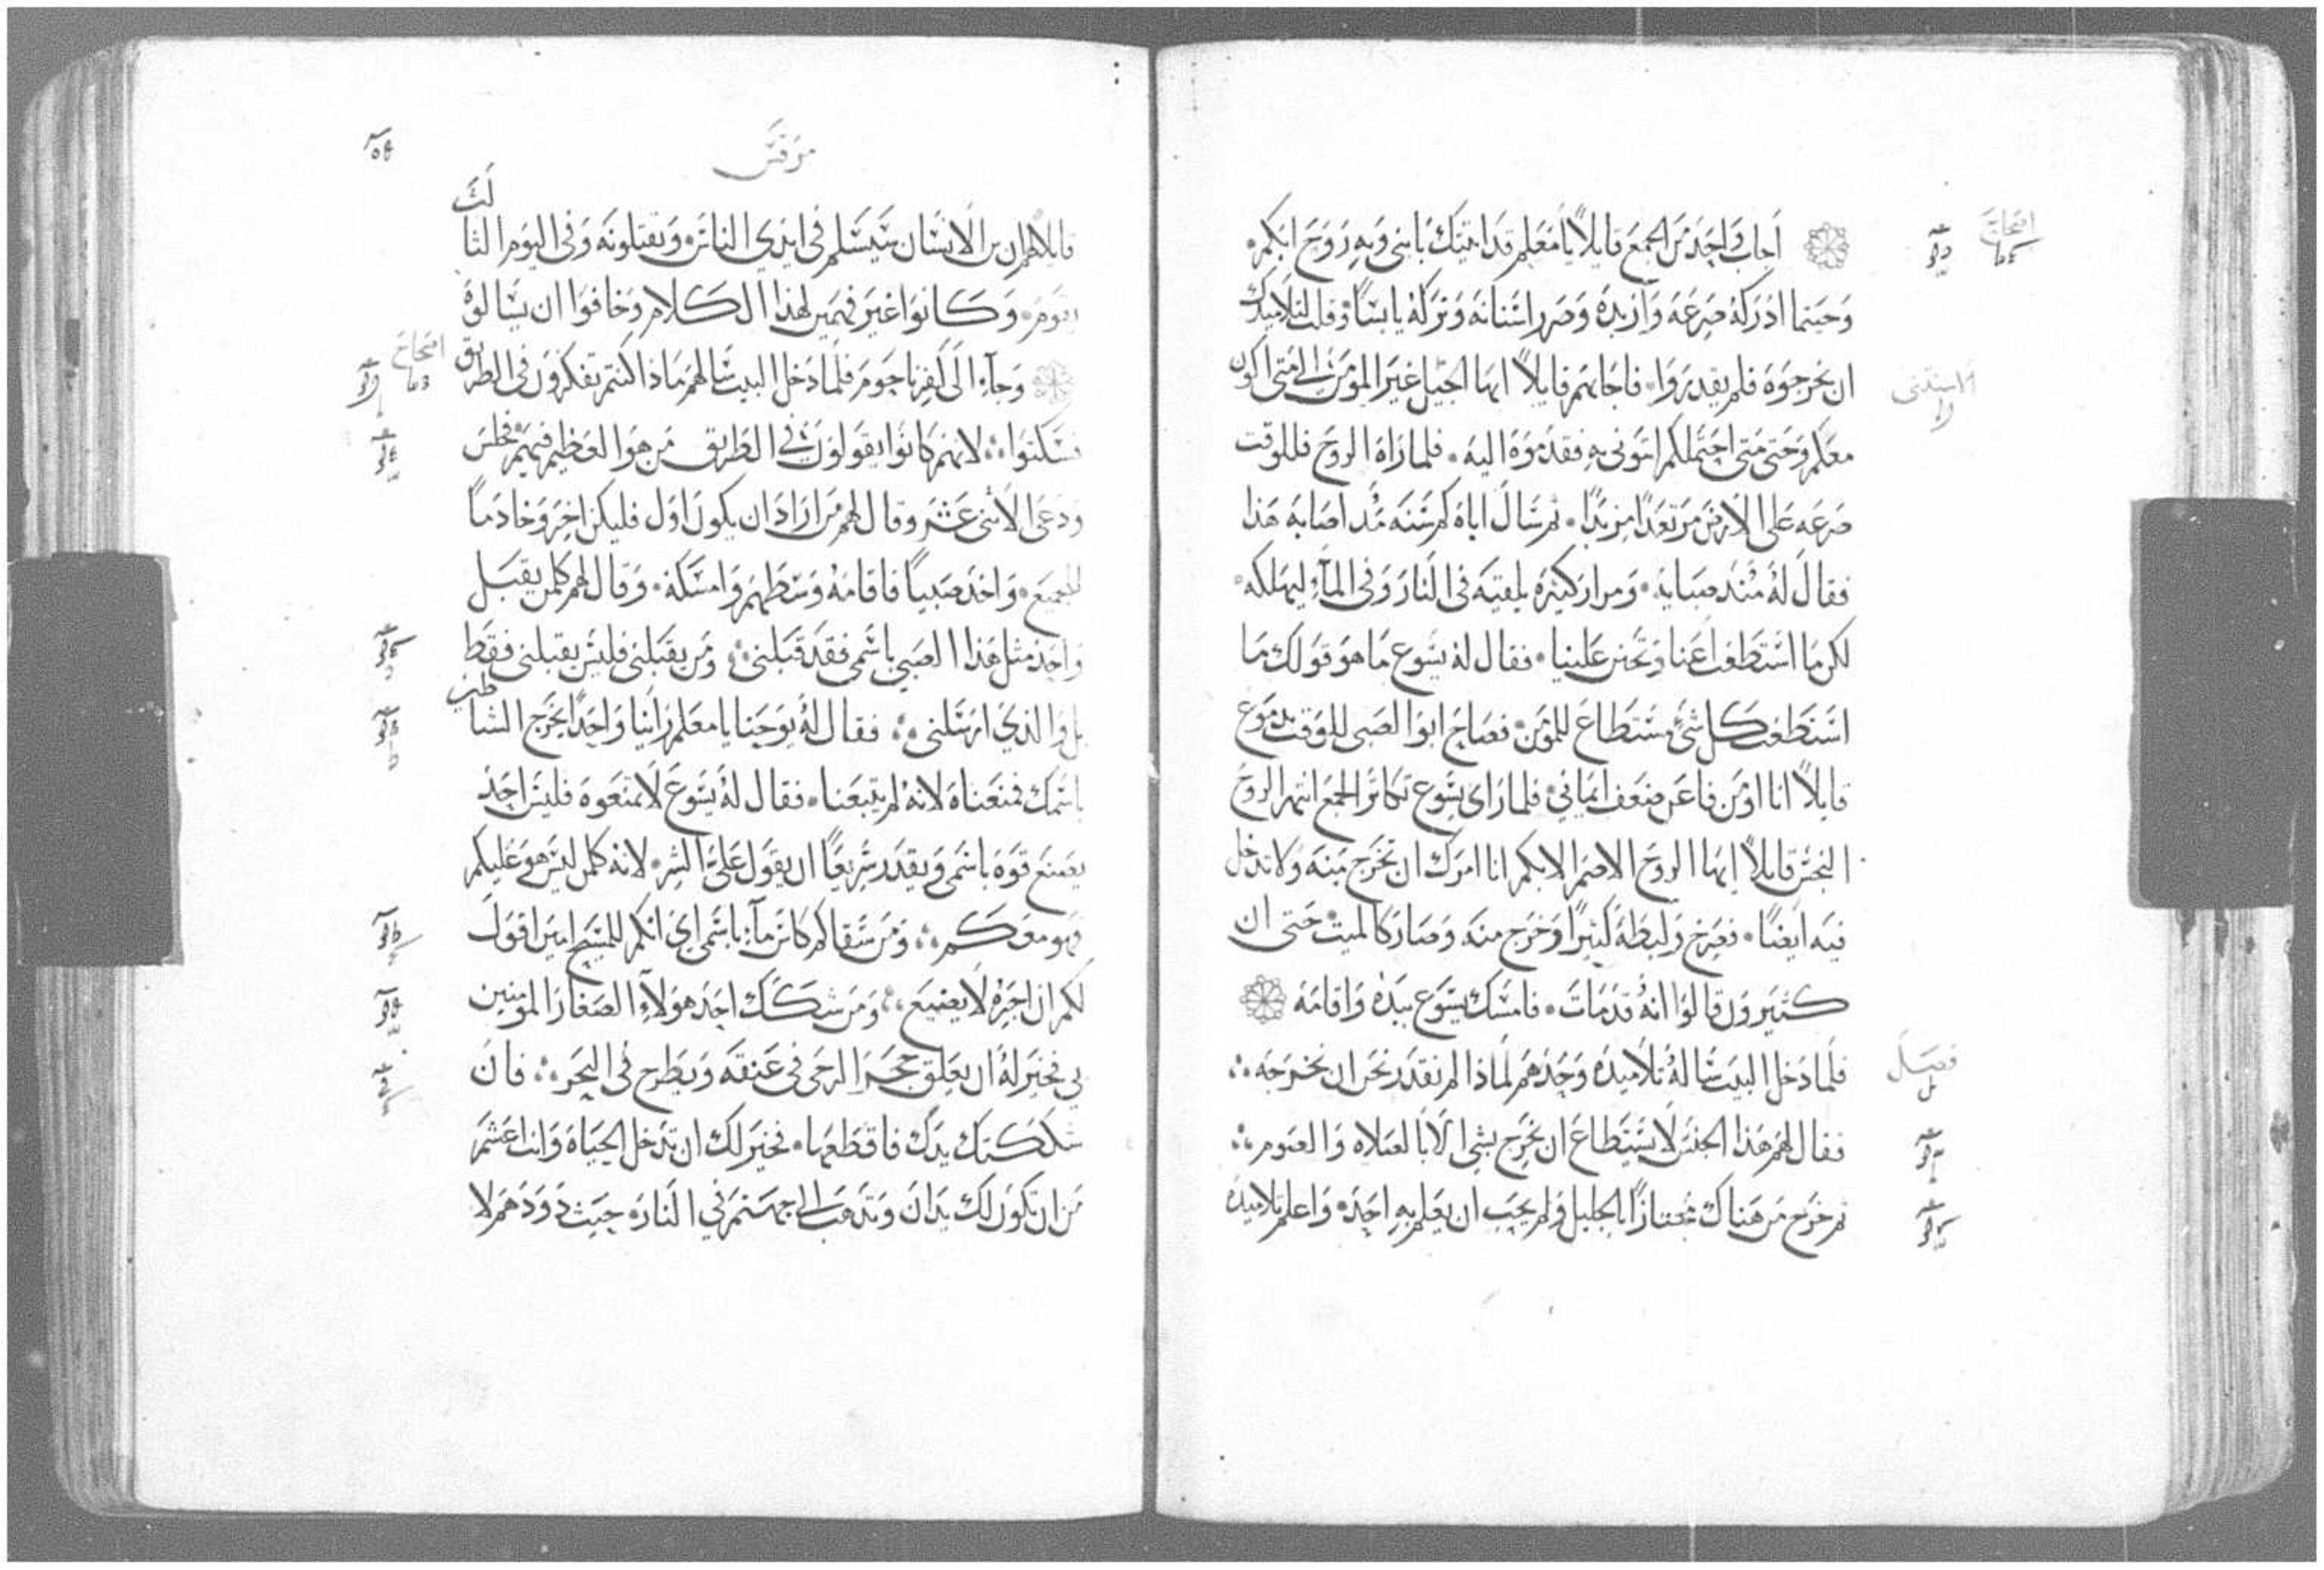 اصحاح
اجاب واحد من الجمع قايلاً يا معلم قد اتيتك بابني وبه روح ابكم
وحيثما ادركه صرعه وازبده وصرر اسنانه وتركه يابسًا وقلت لتلاميدك
ان يخرجوه فلم يقدروا فاجابهم قايلاً ايها الجيل غير المؤمن الى متى اكون
معكم وحتى متى احتملكم ايتونى به فقدموه اليه فلما راه الروح فللوقت
صرعه على الارض مرتعدًا مزبدًا ثم سال اباه كم سنه مُد اصابه هذا
فقال له مُند صبايه ومرار كثيره يلقيه فى النار وفى المآء ليهلكه
لكن ما استطعت اعنا وتحنن علينا فقال له يسوع ما هو قولك ما
استطعت كل شئ مستطاع للمؤمن فصاح ابو الصبى للوقت بدموع
قايلاً انا اومن فاعن ضعف ايمانى فلما راى يسوع تكاثر الجمع انتهر الروح
النجس قايلاً ايها الروح الاصم الابكم انا امرك ان تخرج منه ولا تدخل
فيه ايضًا فصرخ ولبطه كثيرًا وخرج منه وصار كالميت حتى ان
كثيرون قالوا انه قد مات فامسك يسوع بيده واقامه
فصل
فلما دخل البيت ساله تلاميده وحدهم لماذا لم نقدر نحن ان نخرجه
فقال لهم هذا الجنس لا يستطاع ان يخرج بشى الا بالصلاه والصوم
ثم خرج من هناك مجتازًا بالجليل ولم يحب ان يعلم به احد واعلم تلاميده
مرقس
قايلاً لهم ان بن الانسان سيسلم فى ايدي الناس ويقتلونه وفى اليوم الثالث
يقوم وكانوا غير فهمين لهذا الكلام وخافوا ان يسالوه
اصحاح
وجآء الى كفرناحوم فلما دخل البيت سالهم ماذا كنتم تفكرون فى الطريق
فسكتوا لانهم كانوا يقولون فى الطريق من هو العظيم فيهم فجلس
ودعى الاثنى عشر وقال لهم من اراد ان يكون اول فليكن اخر وخادمًا
للجميع واخذ صبيًا فاقامه وسطهم وامسكه وقال لهم كلمن يقبل
واحد مثل هذا الصبي باسمى فقد قبلنى ومن يقبلنى فليس يقبلنى فقط
بل والذي ارسلنى فقال له يوحنا يا معلم راينا واحدًا يخرج الشياطين
باسمك فمنعناه لانه لم يتبعنا فقال له يسوع لا تمنعوه فليس احد
يصنع قوه باسمى ويقدر سريعًا ان يقول علىّ الشر لانه كلمن ليس هو عليكم
فهو معكم ومن سقاكم كاس مآء باسمى اي انكم للمسيح امين اقول
لكم ان اجره لا يضيع ومن شكك احد هولآء الصغار المومنين
بي فخير له ان يعلق حجر الرحى فى عنقه ويطرح فى البحر فان
شككتك يدك فاقطعها فخير لك ان تدخل الحياه وانت اعشم
من ان تكون لك يدان وتدهب الى جهنم فى النار حيث دودهم لا